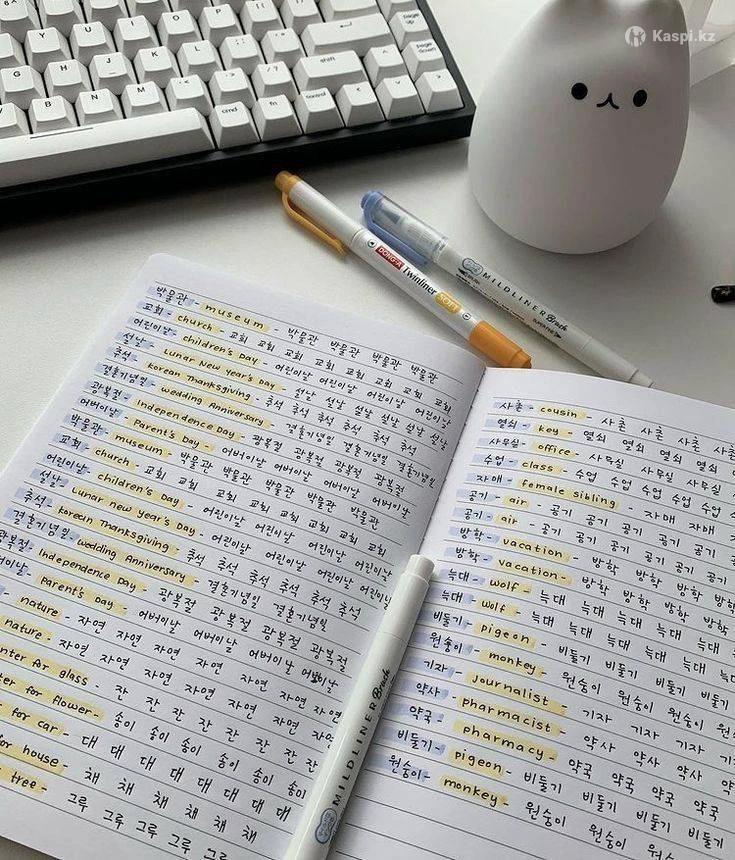 Kaspi.kz
page up
page down
return
shift
Y U I O P
G H J K L
B N M
cmd fn control
DONG-A Twinliner SOFT
MILDLINER Brush
SUPER FINE
박물관 - museum - 박물관 박물관 박물관 박물관
교회 - church - 교회 교회 교회 교회 교회 교회 교회 교회
어린이날 - children's Day - 어린이날 어린이날 어린이날 어린이날
설날 - Lunar New Year's Day - 설날 설날 설날 설날 설날 설날
추석 - Korean Thanksgiving - 추석 추석 추석 추석 추석 추석
결혼기념일 - wedding Anniversary - 결혼기념일 결혼기념일 결혼기념일
광복절 - Independence Day - 광복절 광복절 광복절 광복절
어버이날 - Parent's Day - 어버이날 어버이날 어버이날 어버이날
박물관 - museum - 박물관 박물관 박물관 박물관 박물관
교회 - church - 교회 교회 교회 교회 교회 교회 교회 교회
어린이날 - children's Day - 어린이날 어린이날 어린이날 어린이날
설날 - Lunar new year's Day - 설날 설날 설날 설날 설날
추석 - Korean Thanksgiving - 추석 추석 추석 추석 추석 추석
결혼기념일 - wedding Anniversary - 결혼기념일 결혼기념일
광복절 - Independence Day - 광복절 광복절 광복절 광복절
Parent's Day - 어버이날 어버이날 어버이날 어버이날
- nature - 자연 자연 자연 자연 자연 자연 자연
nature - 자연 자연 자연 자연 자연 자연 자연
for glass - 잔 잔 잔 잔 잔 잔 잔 잔
for flower - 송이 송이 송이 송이 송이 송이
for car - 대 대 대 대 대 대 대 대
for house - 채 채 채 채 채 채
tree - 그루 그루 그루 그루 그루
사촌 - cousin - 사촌 사촌 사촌 사촌
열쇠 - key - 열쇠 열쇠 열쇠 열쇠 열쇠
사무실 - office - 사무실 사무실 사무실
수업 - class - 수업 수업 수업 수업 수업
자매 - female sibling - 자매 자매
공기 - air - 공기 공기 공기 공기 공기
공기 - air - 공기 공기 공기 공기 공기
방학 - vacation - 방학 방학 방학 방학
방학 - vacation - 방학 방학 방학 방학
늑대 - wolf - 늑대 늑대 늑대 늑대 늑대
늑대 - wolf - 늑대 늑대 늑대 늑대 늑대
비둘기 - pigeon - 비둘기 비둘기 비둘기 비둘기
원숭이 - monkey - 원숭이 원숭이 원숭이
기자 - journalist - 기자 기자 기자 기자
약사 - pharmacist - 약사 약사 약사 약사
약국 - pharmacy - 약국 약국 약국 약국
비둘기 - pigeon - 비둘기 비둘기 비둘기 비둘기
원숭이 - monkey - 원숭이 원숭이 원숭이
MILDLINER Brush